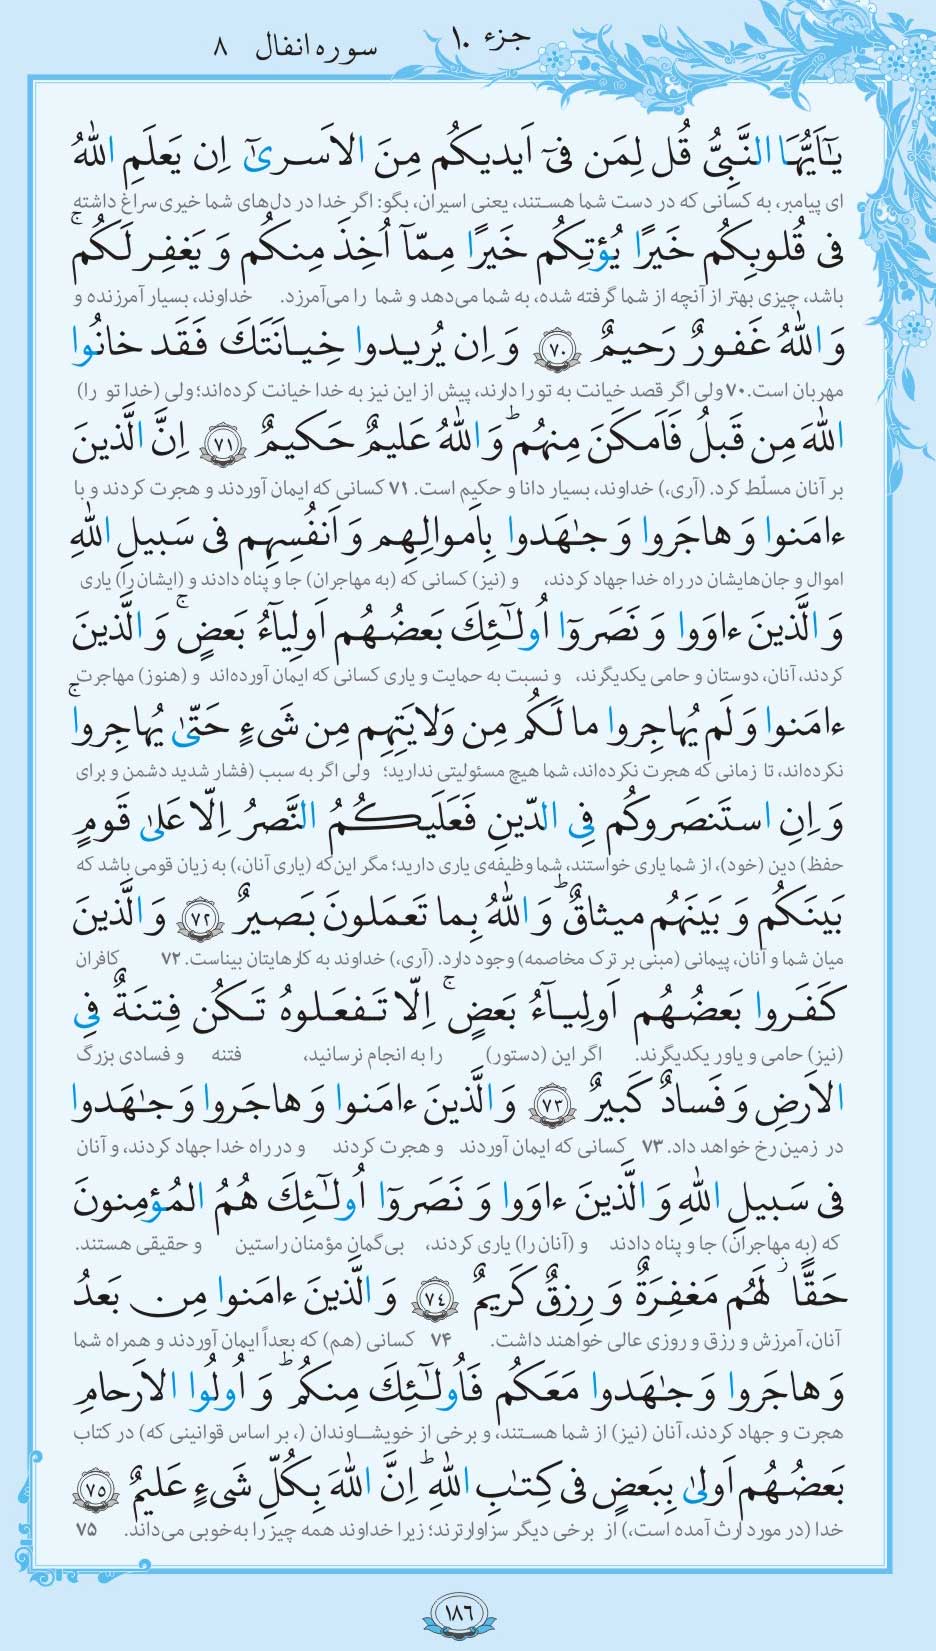 جزء ۱۰
سوره انفال ۸
يـٰٓأَيُّهَا النَّبِىُّ قُل لِمَن فىٓ اَيديكُم مِنَ الاَسرىٰٓ اِن يَعلَمِ اللّٰهُ
ای پیامبر، به کسانی که در دست شما هستند، یعنی اسیران، بگو: اگر خدا در دل‌های شما خیری سراغ داشته
فى قُلوبِكُم خَيرًا يُؤتِكُم خَيرًا مِمّآ اُخِذَ مِنكُم وَ يَغفِر لَكُم ۚ
باشد، چیزی بهتر از آنچه از شما گرفته شده، به شما می‌دهد و شما را می‌آمرزد. خداوند، بسیار آمرزنده و
وَاللّٰهُ غَفورٌ رَحيمٌ ﴿٧٠﴾ وَ اِن يُريدوا خِيانَتَكَ فَقَد خانُوا
مهربان است. ۷۰ ولی اگر قصد خیانت به تو را دارند، پیش از این نیز به خدا خیانت کرده‌اند؛ ولی (خدا تو را)
اللّٰهَ مِن قَبلُ فَاَمكَنَ مِنهُم ۗ وَاللّٰهُ عَليمٌ حَكيمٌ ﴿٧١﴾ اِنَّ الَّذينَ
بر آنان مسلّط کرد. (آری،) خداوند، بسیار دانا و حکیم است. ۷۱ کسانی که ایمان آوردند و هجرت کردند و با
ءامَنوا وَ هاجَروا وَ جـٰهَدوا بِاَموالِهِم وَ اَنفُسِهِم فى سَبيلِ اللّٰهِ
اموال و جان‌هایشان در راه خدا جهاد کردند، و (نیز) کسانی که (به مهاجران) جا و پناه دادند و (ایشان را) یاری
وَ الَّذينَ ءاوَوا وَ نَصَروٓا اُولـٰٓئِكَ بَعضُهُم اَولِيآءُ بَعضٍ ۚ وَ الَّذينَ
کردند، آنان، دوستان و حامی یکدیگرند، و نسبت به حمایت و یاری کسانی که ایمان آورده‌اند و (هنوز) مهاجرت
ءامَنوا وَ لَم يُهاجِروا ما لَكُم مِن وَلايَتِهِم مِن شَىءٍ حَتّىٰ يُهاجِروا ۚ
نکرده‌اند، تا زمانی که هجرت نکرده‌اند، شما هیچ مسئولیتی ندارید؛ ولی اگر به سبب (فشار شدید دشمن و برای
وَ اِنِ استَنصَروكُم فِى الدّينِ فَعَلَيكُمُ النَّصرُ اِلّا عَلىٰ قَومٍ
حفظ) دین (خود)، از شما یاری خواستند، شما وظیفه‌ی یاری دارید؛ مگر این‌که (یاری آنان،) به زیان قومی باشد که
بَينَكُم وَ بَينَهُم ميثاقٌ ۗ وَاللّٰهُ بِما تَعمَلونَ بَصيرٌ ﴿٧٢﴾ وَ الَّذينَ
میان شما و آنان، پیمانی (مبنی بر ترک مخاصمه) وجود دارد. (آری،) خداوند به کارهایتان بیناست. ۷۲ کافران
كَفَروا بَعضُهُم اَولِيآءُ بَعضٍ ۚ اِلّا تَفعَلوهُ تَكُن فِتنَةٌ فِى
(نیز) حامی و یاور یکدیگرند. اگر این (دستور) را به انجام نرسانید، فتنه و فسادی بزرگ
الاَرضِ وَ فَسادٌ كَبيرٌ ﴿٧٣﴾ وَ الَّذينَ ءامَنوا وَ هاجَروا وَ جـٰهَدوا
در زمین رخ خواهد داد. ۷۳ کسانی که ایمان آوردند و هجرت کردند و در راه خدا جهاد کردند، و آنان
فى سَبيلِ اللّٰهِ وَ الَّذينَ ءاوَوا وَ نَصَروٓا اُولـٰٓئِكَ هُمُ المُؤمِنونَ
که (به مهاجران) جا و پناه دادند و (آنان را) یاری کردند، بی‌گمان مؤمنان راستین و حقیقی هستند.
حَقًّا ۚ لَهُم مَغفِرَةٌ وَ رِزقٌ كَريمٌ ﴿٧٤﴾ وَ الَّذينَ ءامَنوا مِن بَعدُ
آنان، آمرزش و رزق و روزی عالی خواهند داشت. ۷۴ کسانی (هم) که بعداً ایمان آوردند و همراه شما
وَ هاجَروا وَ جـٰهَدوا مَعَكُم فَاُولـٰٓئِكَ مِنكُم ۗ وَ اُولُوا الاَرحامِ
هجرت و جهاد کردند، آنان (نیز) از شما هستند، و برخی از خویشاوندان (، بر اساس قوانینی که) در کتاب
بَعضُهُم اَولىٰ بِبَعضٍ فى كِتـٰبِ اللّٰهِ ۗ اِنَّ اللّٰهَ بِكُلِّ شَىءٍ عَليمٌ ﴿٧٥﴾
خدا (در مورد ارث آمده است،) از برخی دیگر سزاوارترند؛ زیرا خداوند همه چیز را به‌خوبی می‌داند. ۷۵
١٨٦